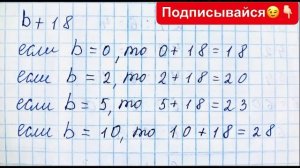 Подписывайся😉👇
b + 18
если b = 0, то 0 + 18 = 18
если b = 2, то 2 + 18 = 20
если b = 5, то 5 + 18 = 23
если b = 10, то 10 + 18 = 28